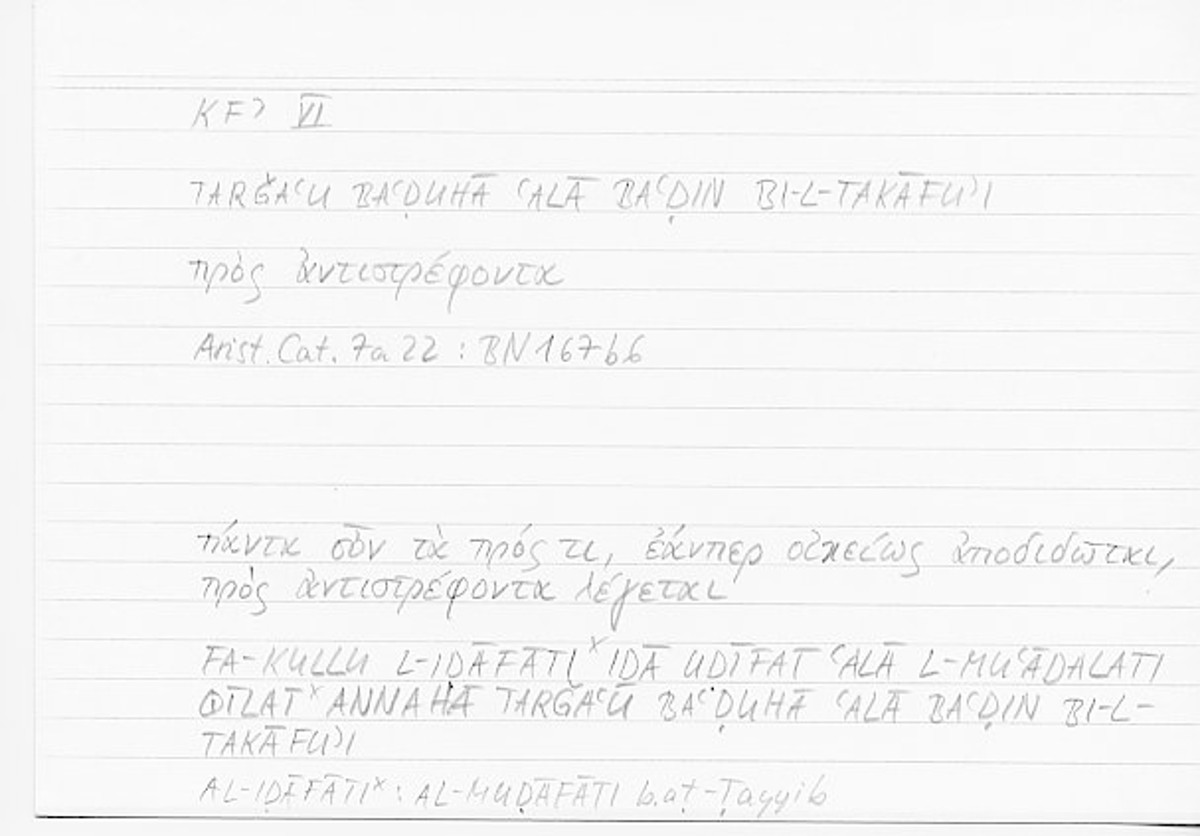 KFʾ VI
TARǦAʿU BAʿḌUHĀ ʿALĀ BAʿḌIN BI-L-TAKĀFUʾI
πρὸς ἀντιστρέφοντα
Arist. Cat. 7a 22 : BN 167b6
πάντα οὖν τὰ πρός τι, ἐάνπερ οἰκείως ἀποδιδῶται,
πρὸς ἀντιστρέφοντα λέγεται
FA-KULLU L-IḌĀFĀTIˣ IḎĀ UḌĪFAT ʿALĀ L-MUʿĀDALATI
QĪLATˣ ANNAHĀ TARǦAʿU BAʿḌUHĀ ʿALĀ BAʿḌIN BI-L-
TAKĀFUʾI
AL-IḌĀFĀTIˣ : AL-MUḌĀFĀTI b.aṭ-Ṭayyib